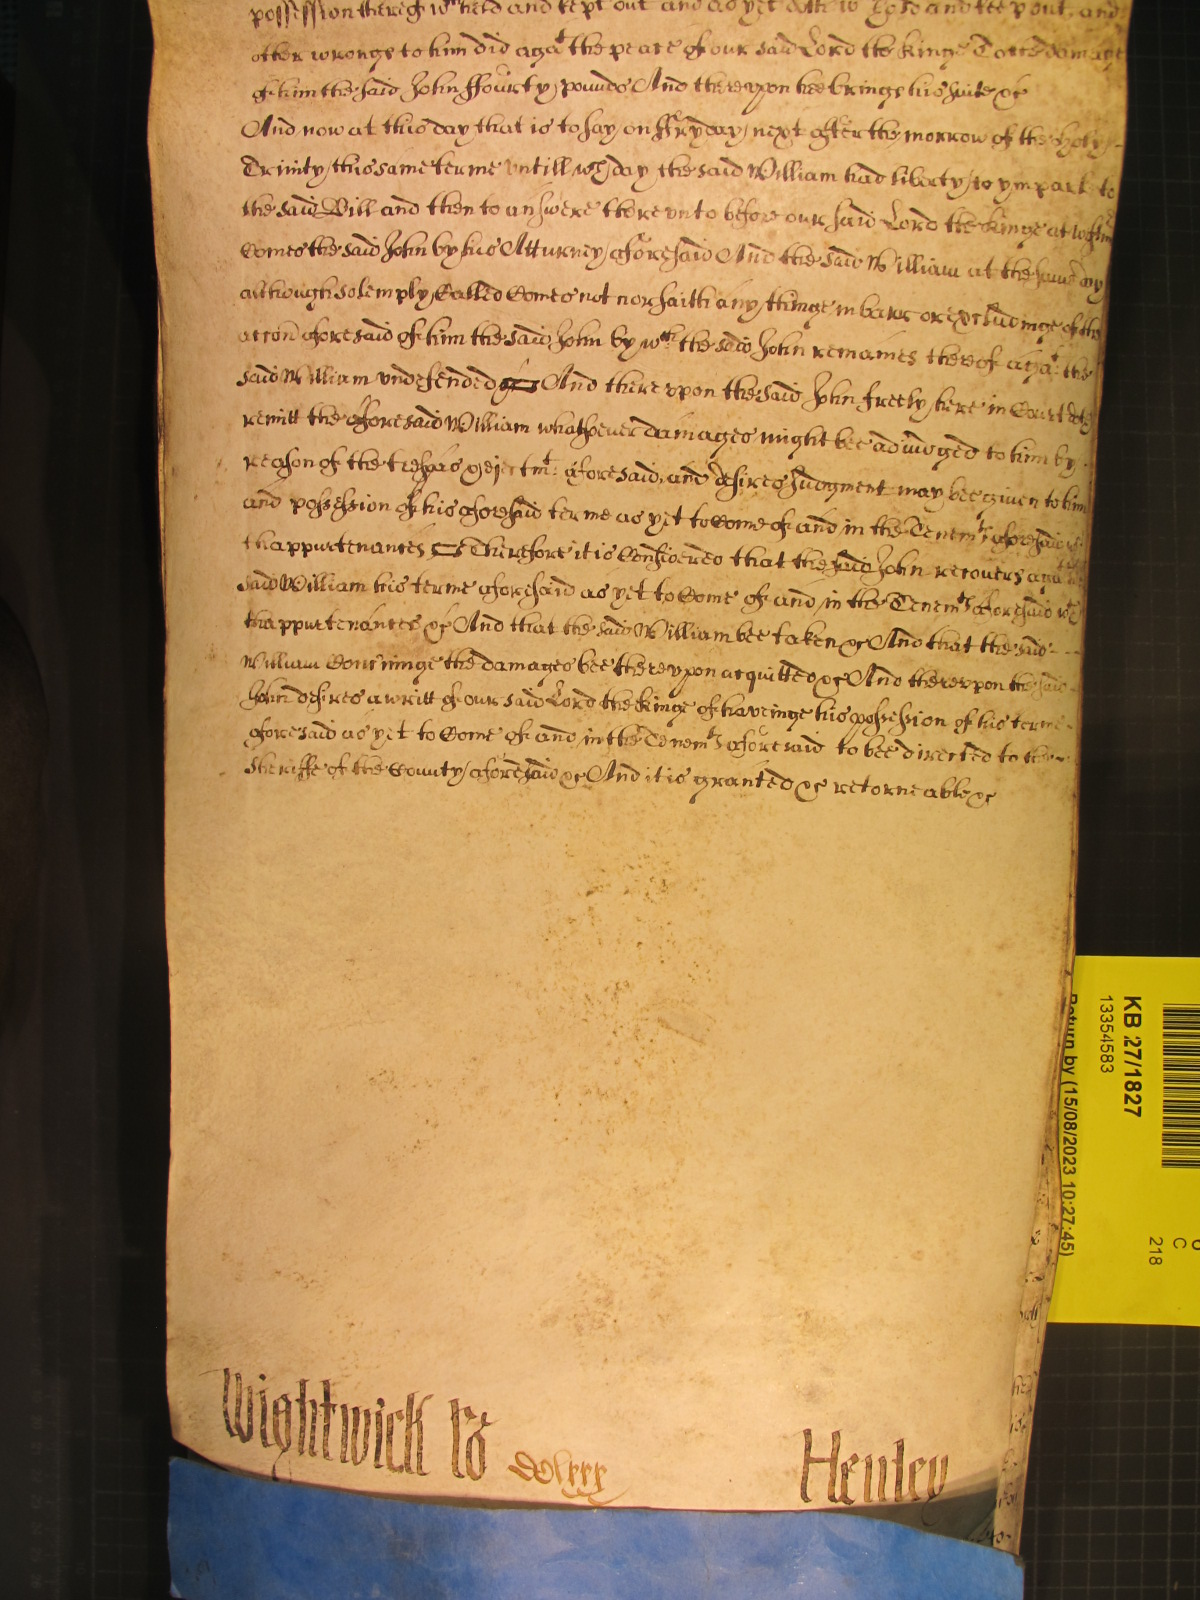 possession thereof wth held and kept out and as yet doth wth hold and keep out and
other wronge to him did agat the peace of our said Lord the Kinge To the damage
of him the said John ffourty pounds And therevpon hee bringe his suite &c
And now at this day that is to say on ffryday next after the morrow of the holy
Trinity this same terme vntill wch day the said William had liberty to ymparle to
the said Bill and then to answere therevnto before our said Lord the Kinge at Westmr
Comes the said John by his Atturney aforesaid And the said William at the same day
although solemply Called Comes not nor saith any thinge in barr or excludinge of the
accon aforesaid of him the said John by wch the said John remaines thereof agat the
said William vndefended And therevpon the said John freely here in Court doth
remitt the aforesaid William whatsoever damages might bee adiudged to him by
reason of the trespas & ejectmt aforesaid, and desires Judgment may bee given to him
and possession of his aforesaid terme as yet to Come of and in the Tenemts aforesaid wth
thappurtenances Therefore it is Considered that the said John recovers agat the
said William his terme aforesaid as yet to Come of and in the Tenemts aforesaid wth
thappurtenances &c And that the said William bee taken &c And that the said
William Concninge the damages bee therevpon acquitted &c And therevpon the said
John desires a writt of our said Lord the Kinge of haveinge his possession of his terme
aforesaid as yet to Come of and in the Tenemts aforesaid to bee directed to the
Sheriffe of the County aforesaid &c And it is granted &c retorneable &c
Wightwick
Henley
KB 27/1827
13354583
Return by (15/08/2023 10:27:45)
C
218